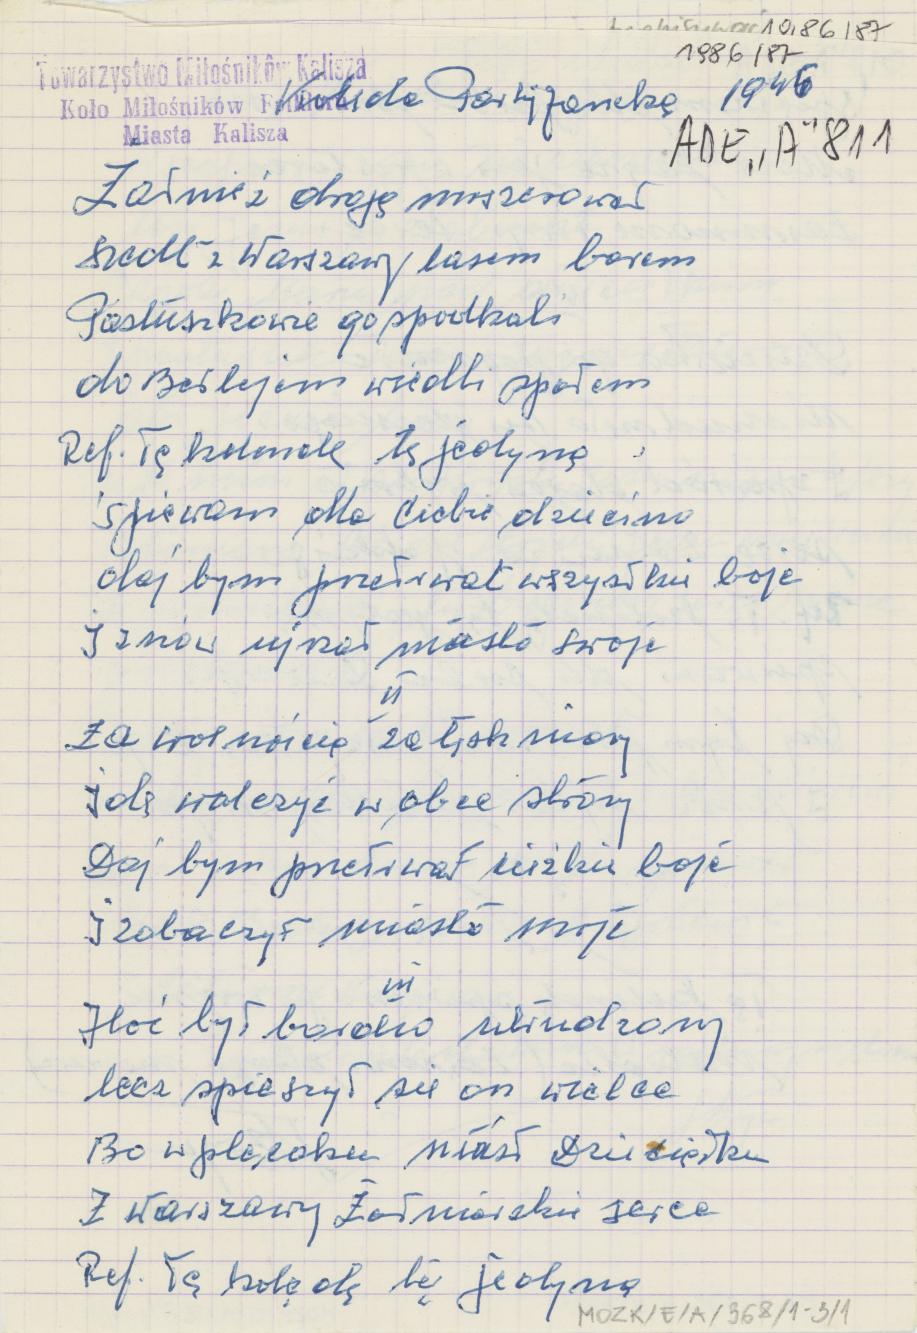 1986/87
1986/87
Towarzystwo Miłośników Kalisza
Koło Miłośników Folkloru
Miasta Kalisza
Kolęda Partyzancka 1946
ADE „A" 811
Żołnież drogą maszerował
Szedł z Warszawy lasem borem
Pastuszkowie go spodkali
do Betlejem wiedli społem
Ref. Tą kolendę tą jedyną
śpiewam dla Ciebie dziecino
daj bym przetrwał wszystkie boje
I znów ujrzał miasto swoje
II
Za wolnością zatęskniony
Idę walczyć w obce strony
Daj bym przetrwał ciężkie boje
I zobaczył miasto moje
III
Iloć był bardzo utrudzony
lecz spieszył sie on wielce
Bo w plecaku niósł Dzieciątku
Z Warszawy Żołnierskie serce
Ref. Tą kolędę tę jedyną
MOZK/E/A/368/1-3/1